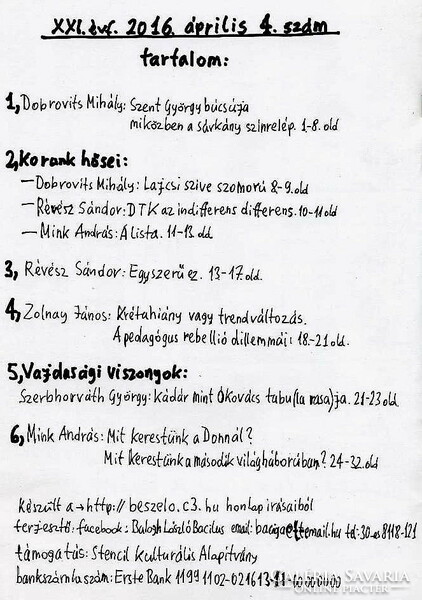 XXI.évf. 2016. április 4. szám
tartalom:
1, Dobrovits Mihály: Szent György búcsúja
miközben a sárkány szinrelép. 1-8. old
2, Korunk hősei:
— Dobrovits Mihály: Lajcsi szive szomorú 8-9. old
— Révész Sándor: DTK az indifferens differens. 10-11 old
— Mink András: Álista. 11-13. old.
3, Révész Sándor: Egyszerű ez. 13-17. old.
4, Zolnay János: Krétahiány vagy trendváltozás.
A pedagógus rebellió dillemmái: 18-21. old.
5, Vajdasági viszonyok:
Szerbhorváth György: Kádár mint Ókovács tabu(la rasa)ja. 21-23 old.
6, Mink András: Mit kerestünk a Donnál?
Mit kerestünk a második világháborúban? 24-32. old
Készült a → http://beszelo.c3.hu honlap irásaiból
terjesztő: facebook: Balogh László Bacilus email: tel: 30-es 8118-121
támogatás: Stencil Kulturális Alapítvány
bankszámla szám: Erste Bank 1199 1102-02161311-